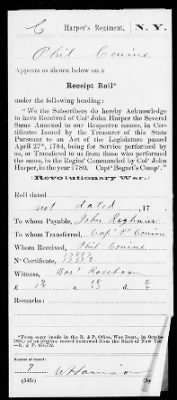 C Harper's Regiment, N. Y.
Phil Conine
Appears as shown below on a
Receipt Roll*
under the following heading:
"We the Subscribers do hereby Acknowledge
to have Received of Colº John Harper the Several
Sums Annexed to our Respective names, in
Certificates Issued by the Treasurer of this State
Pursuant to an Act of the Legislature passed
April 27th, 1784, being for Service performed by
us, or Transfered to us from those who performed
the same, in the Regim' Commanded by Colº John
Harper, in the year 1780. Captn Bogart's Compy."
(Revolutionary War.)
Roll dated
not dated, 17
To whom Payable, John
To whom Transferred, Capt P. Conine
Whom Received, Phil Conine
Nº Certificate,
Witness, Roseboom
£ s d
Remarks:
*From copy (made in the R. & P. Office, War Dept., in October
of an original record borrowed from the State of New York
—R. & P.
Number of record:
7
(545c)